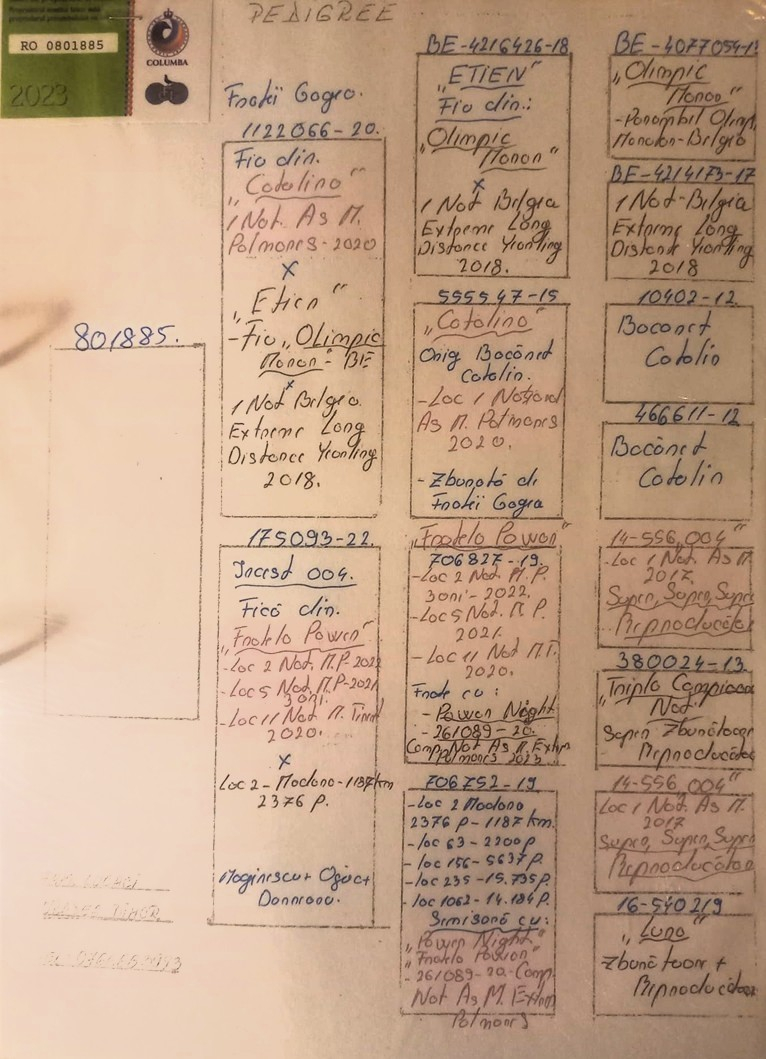 PEDIGREE
RO 0801885
COLUMBA
2023
801885.
Fratii Gogea.
1122066-20.
Fiu din.
"Catalina"
1 Nat. As M.
Palmares-2020
X
"Etien"
-Fiu "Olimpic
Monar"- BE
x
1 Nat Belgia.
Extreme Long
Distance Yearling
2018.
175093-22.
Incest 004.
Fică din.
"Fratelo Power"
-Loc 2 Nat. M.P-2022
-Loc 5 Nat M.P-2021
3 ani.
-Loc 11 Nat M. Tineret
2020.
X
Loc 2-Modono-1187km
2376 P.
Maginescu+Ogica+
BE-4216426-18
"ETIEN"
Fiu din:
"Olimpic
Monar"
x
1 Nat Belgia
Extreme Long
Distance Yearling
2018.
555547-15
"Catalina"
Orig Bocănet
Catalin.
-Loc 1 Național
As M. Palmares
2020.
-Zburată de
Fratii Gogea
"Fratelo Power"
706827-19.
-Loc 2 Nat. M.P.
3 ani-2022.
-Loc 5 Nat. M P.
2021.
-Loc 11 Nat M.T.
2020.
Frate cu:
-Power Night
-261089-20.
Comp Nat As M. Extrem
Palmares 2023
706752-19
-Loc 2 Modono
2376 P-1187 km.
-loc 63-2200p
-loc 156-5637P.
-loc 235-15.735p.
-loc 1062-14.184p.
Semisora cu:
"Power Night"
"Fratelo Power"
-261089-20-Comp.
Nat As M. Extrem
Palmares
BE-4077054-1
"Olimpic
Monar"
-Porumbel Olimp
Maraton-Belgia
BE-4214173-17
1 Nat-Belgia
Extreme Long
Distance Yearling
2018
10402-12.
Bocănet
Catalin
466611-12
Bocănet
Catalin
14-556.004"
-Loc 1 Nat. As M.
2017.
Super, Super, Super
Reproducător
380024-13.
"Triplo Campioana
Nat.
Super Zburătoare
Reproducătoare
14-556.004"
Loc 1 Nat As M.
2017
Super, Super, Super
Reproducător
16-540219
"Luna"
Zburătoare +
Reproducătoare